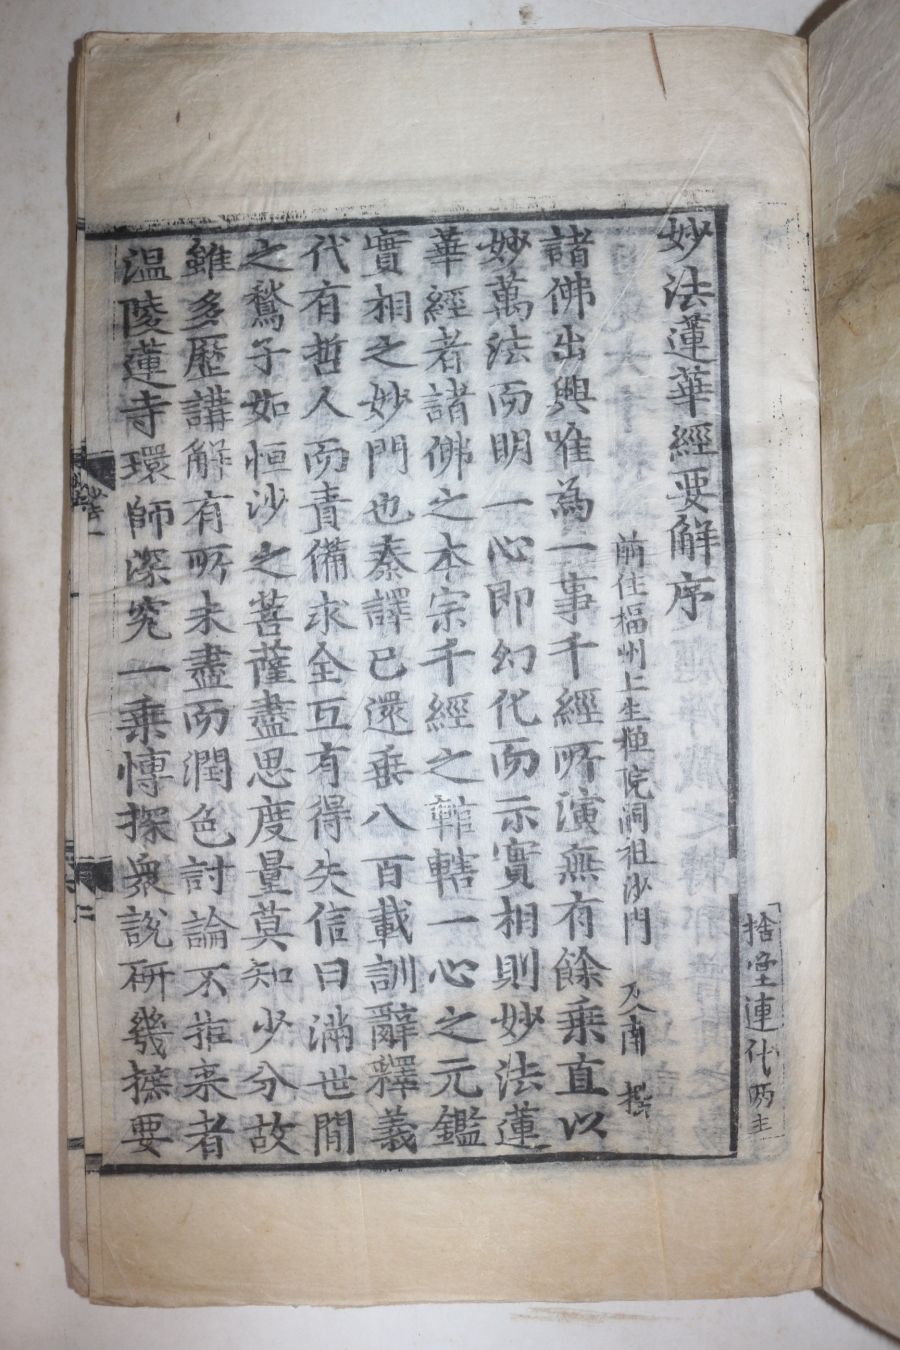 妙法蓮華經要解序
前住福州上生禪院嗣祖沙門 及南 撰
諸佛出興唯為一事千經所演無有餘乘直以
妙萬法而明一心即幻化而示實相則妙法蓮
華經者諸佛之本宗千經之輨轄一心之元鑑
實相之妙門也秦譯已還垂八百載訓辭釋義
代有哲人而責備求全互有得失信曰滿世間
之鶖子如恒沙之菩薩盡思度量莫知少分故
雖多歷講解有所未盡而潤色討論不拒来者
温陵蓮寺環師深究一乗慱探衆說研幾摭要
捨堂連代兩主